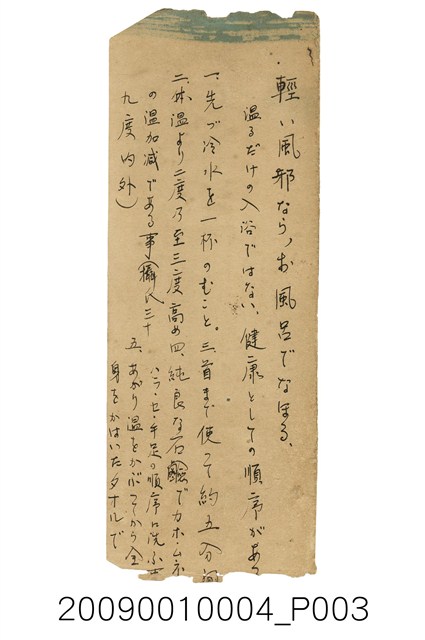 輕い風邪なら、お風呂でなほる、
温るだけの入浴ではない、健康としての順序があ
一、先づ冷水を一杯のむこと。三、首まで使つて約五分
二、体温より二度乃至三度高め 四、純良な石鹸でカホ・ムネ
の温加減である事(攝氏三十 ハラ・セ・手足の順序に洗ふ
九度内外) 五、あがり温をかぶつてから全
身をかはいたタオルで
20090010004_P003